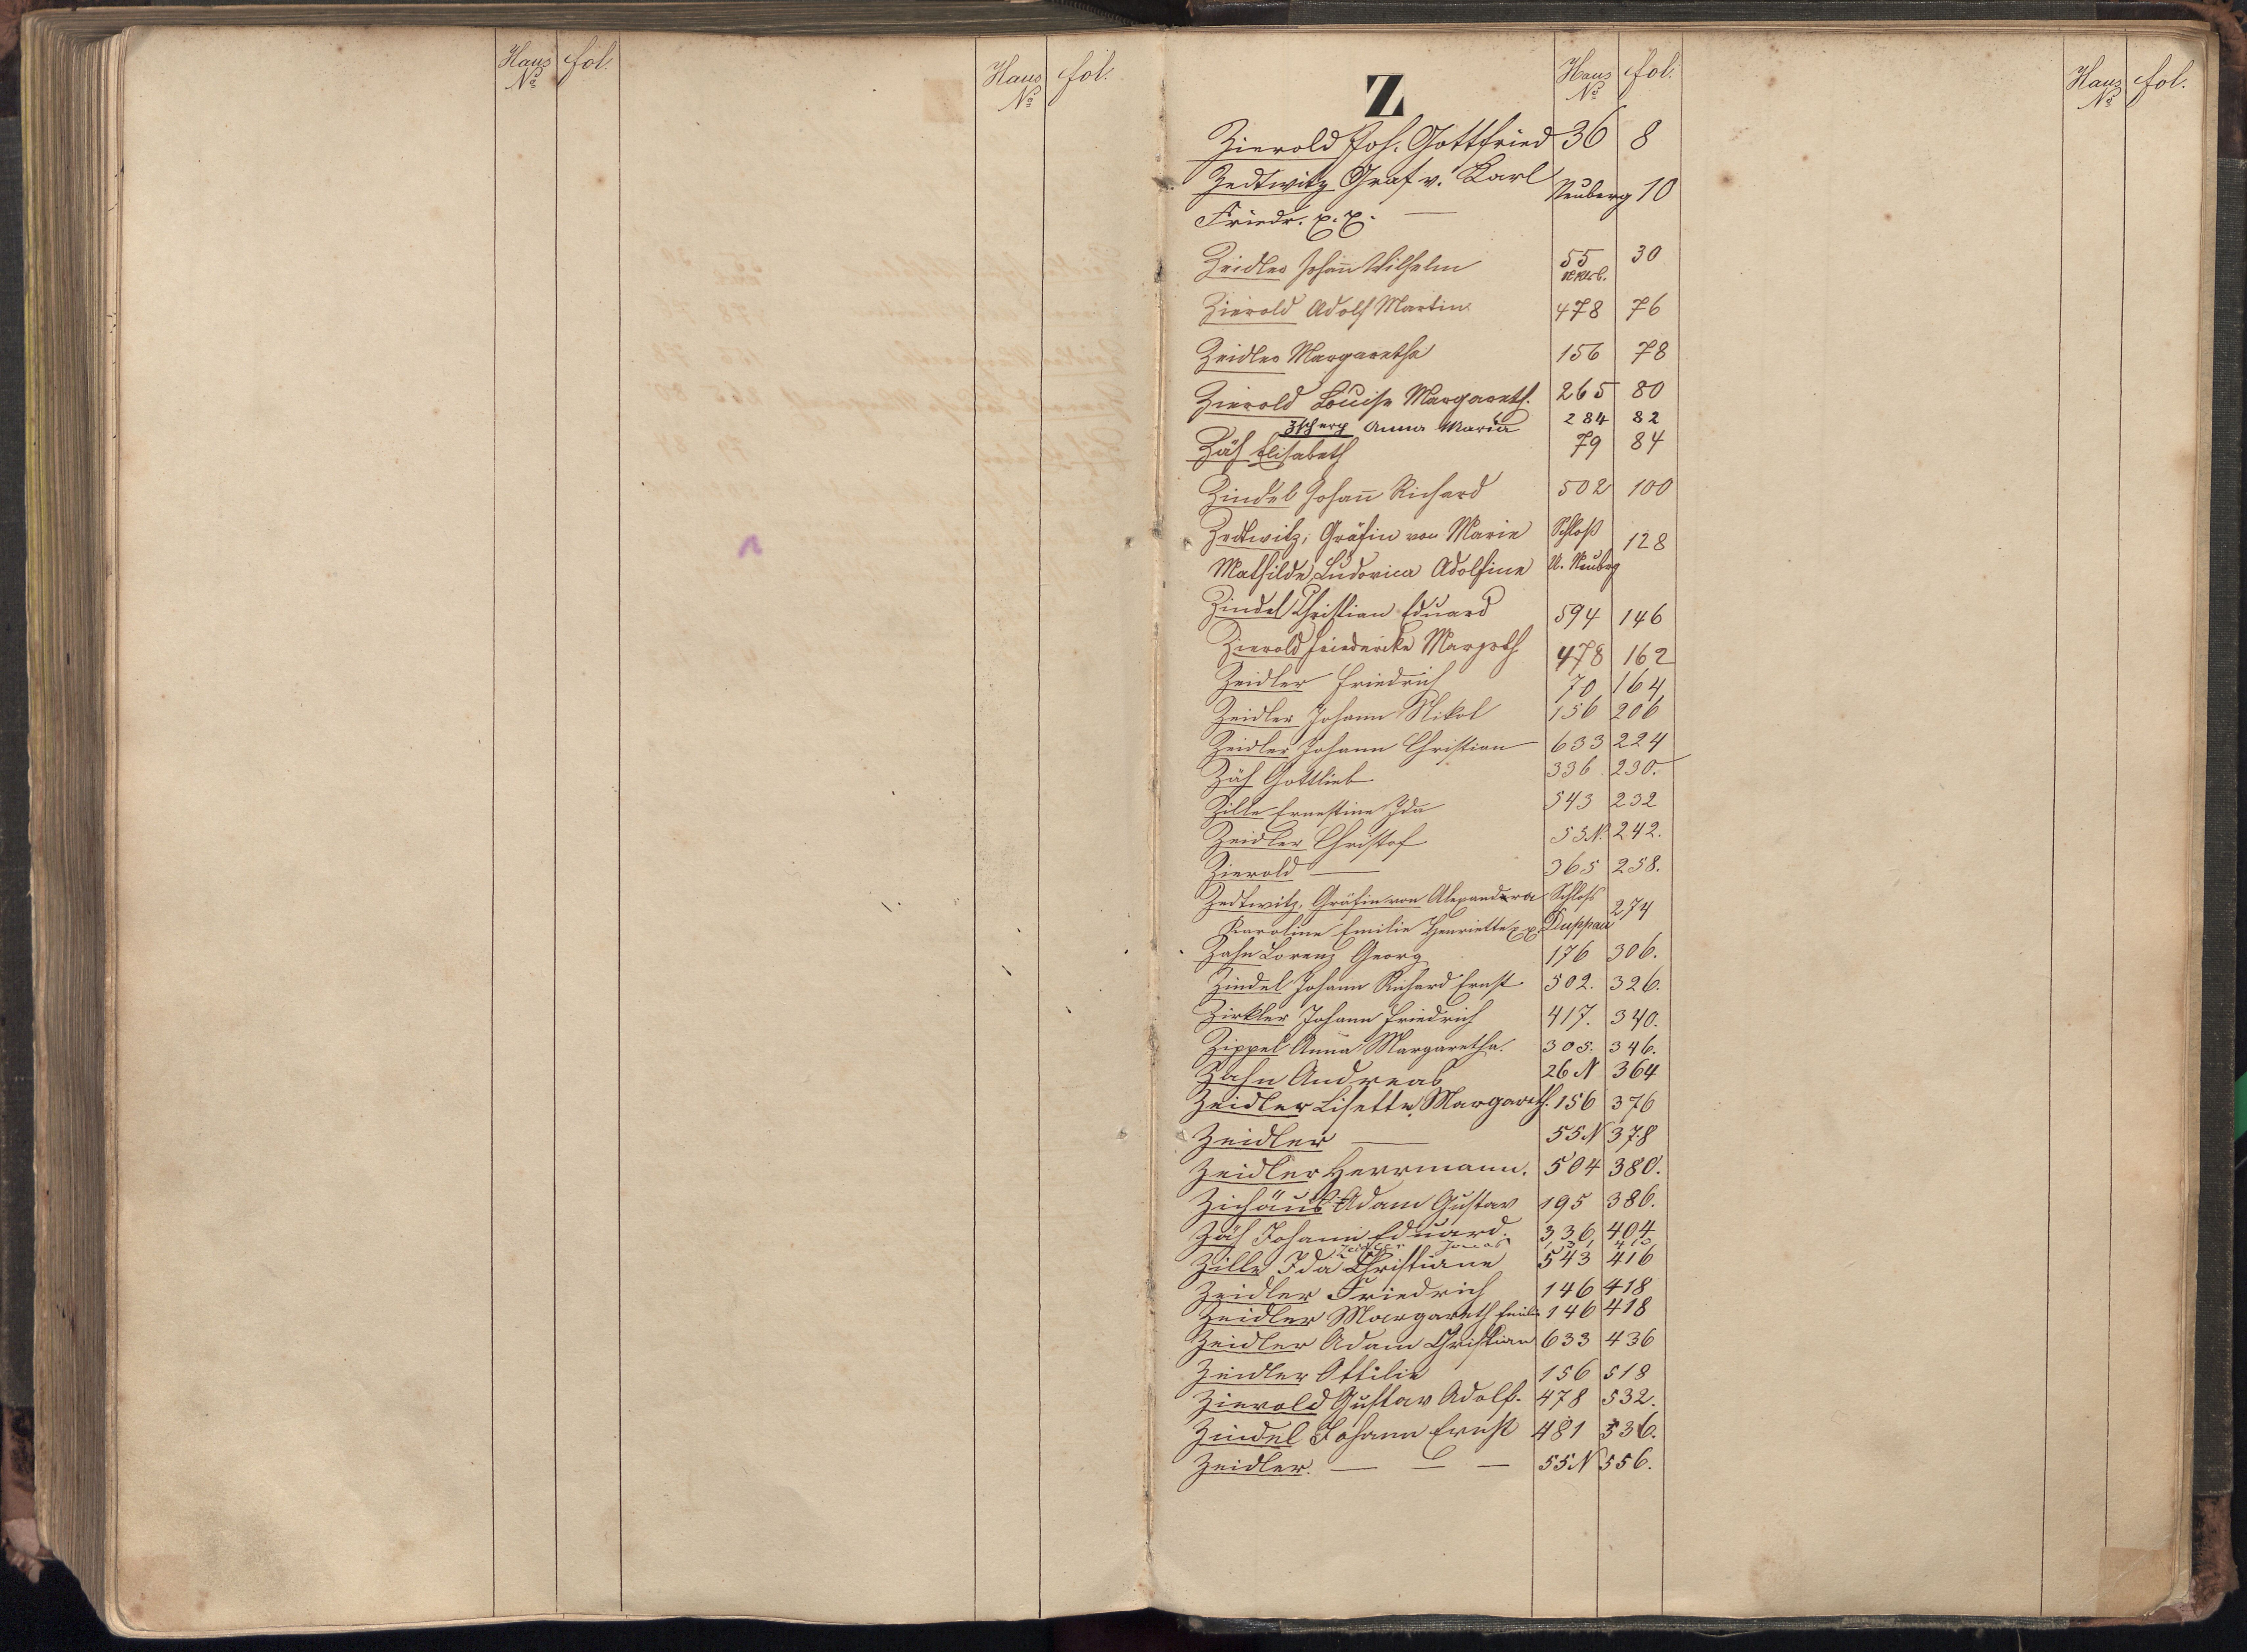 Haus No fol.
Haus No fol.
Z
Haus No fol.
Haus No fol.
Zierold Joh. Gottfried 36 8
Zedtwitz Graf v. Karl Neuberg 10
Friedr. x. x. —
Zeidler Johann Wilhelm 55 30
Zierold Adolf Martin 478 76
Zeidler Margaretha 156 78
Zierold Louise Margareth. 265 80
Zscherp Anna Maria 284 82
Zäh Elisabeth 79 84
Zindel Johann Richard 502 100
Zedtwitz, Gräfin von Marie Schloß 128
Mathilde Ludovica Adolfine U. Neubrg
Zindel Christian Eduard 594 146
Zierold Friedericke Margrth 478 162
Zeidler Friedrich 70 164
Zeidler Johann Nikol 156 206
Zeidler Johann Christian 633 224
Zäh Gottlieb 336 230.
Zille Ernestine Ida 543 232
Zeidler Christof 53 N. 242.
Zierold — 365 258.
Zedtwitz, Gräfin von Alexandra Schloss 274
Karoline Emilie Henriette x x. Duppau
Zahn Lorenz Georg 176 306.
Zindel Johann Richard Ernst 502. 326.
Zirkler Johann Friedrich 417. 340.
Zippel Anna Margaretha. 305. 346.
Zahn Andreas 26 N 364
Zeidler Lisette Margareth. 156 376
Zeidler — 55 N 378
Zeidler Herrmann. 504 380.
Zichäus Adam Gustav 195 386.
Zäh Johann Eduard. 336 404
Zeidler Jonas 410
Zille Ida Christiane 543 416
Zeidler Friedrich 146 418
Zeidler Margareth Emilie 146 418
Zeidler Adam Christian 633 436
Zeidler Ottilie 156 518
Zierold Gustav Adolf. 478 532.
Zindel Johann Ernst 481 536.
Zeidler. — — — 55 N 556.